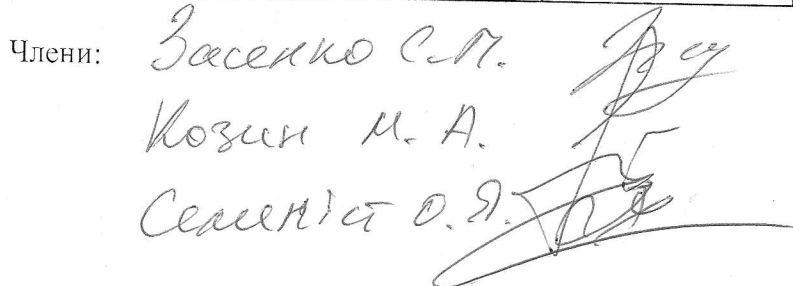 Члени: Засенко С.П.
Козин М. А.
Семеніст О.Я.